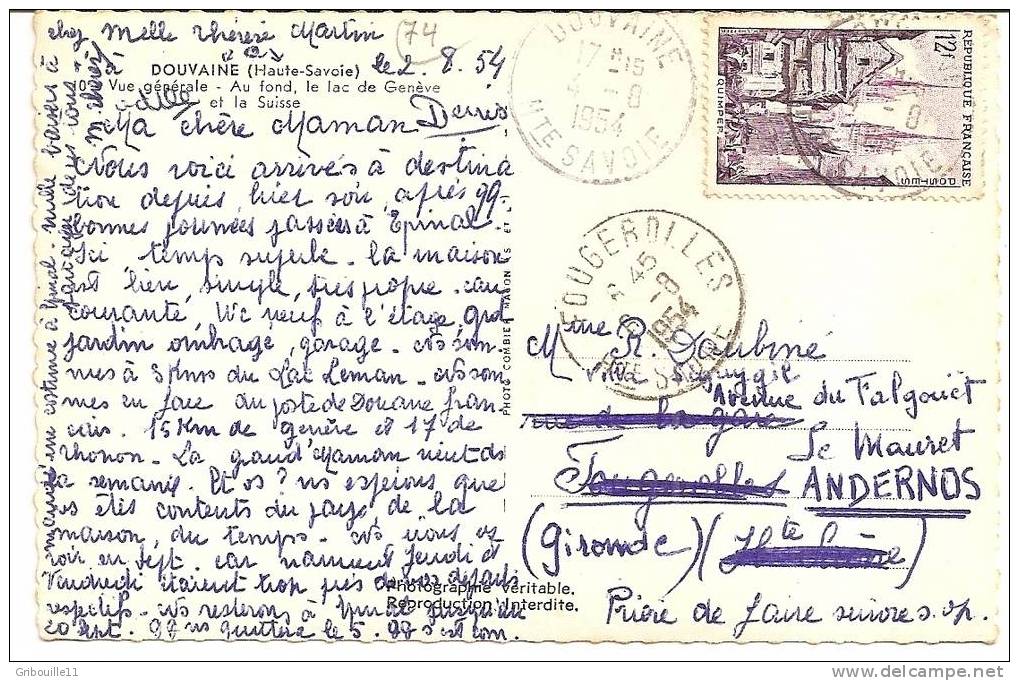 chez Melle Thérèse Martin
(74
à
le 2. 8. 54
DOUVAINE (Haute-Savoie)
Vue générale - Au fond, le lac de Genève
et la Suisse
Ma chère Maman Denis
Nous voici arrivés à destina
tion depuis hier soir, après 99
bonnes journées passées à Epinal.
Ici temps superbe - la maison
est bien, simple, très propre - eau
courante, Wc neuf à l'étage, gd
jardin ombragé, garage - Ns som
mes à 3 kms du Lac Léman - Ns som
mes en face du poste de Douane fran
çais. 15 Km de Genève et 17 de
Thonon. La grand'Maman vient ds
la semaine. Et vs ? ns espérons que
vs êtes contents du pays de la
maison, du temps - Ns irons vs
voir en Sept. car vraiment Jeudi et
Vendredi étaient trop près de nos départs
respectifs - Ns resterons à Epinal jusqu'au
20 Sept.
quittera le 5.
costume à Epinal - mille baisers à
PHOTO COMBIER MACON
Photographie Véritable.
Reproduction Interdite.
DOUVAINE
17 - 15
- 8
1954
HTE SAVOIE
REPUBLIQUE FRANÇAISE
12f
POSTES
QUIMPER
SAVOIE
FOUGEROLLES
45
- 8
1954
Mme R. Daubiné
Avenue du Falgouët
rue de la gare
Le Mauret
Fougerolles ANDERNOS
(Gironde) (Hte Saône)
Prière de faire suivre s.v.p.
Gribouille11
http://www.delcampe.net